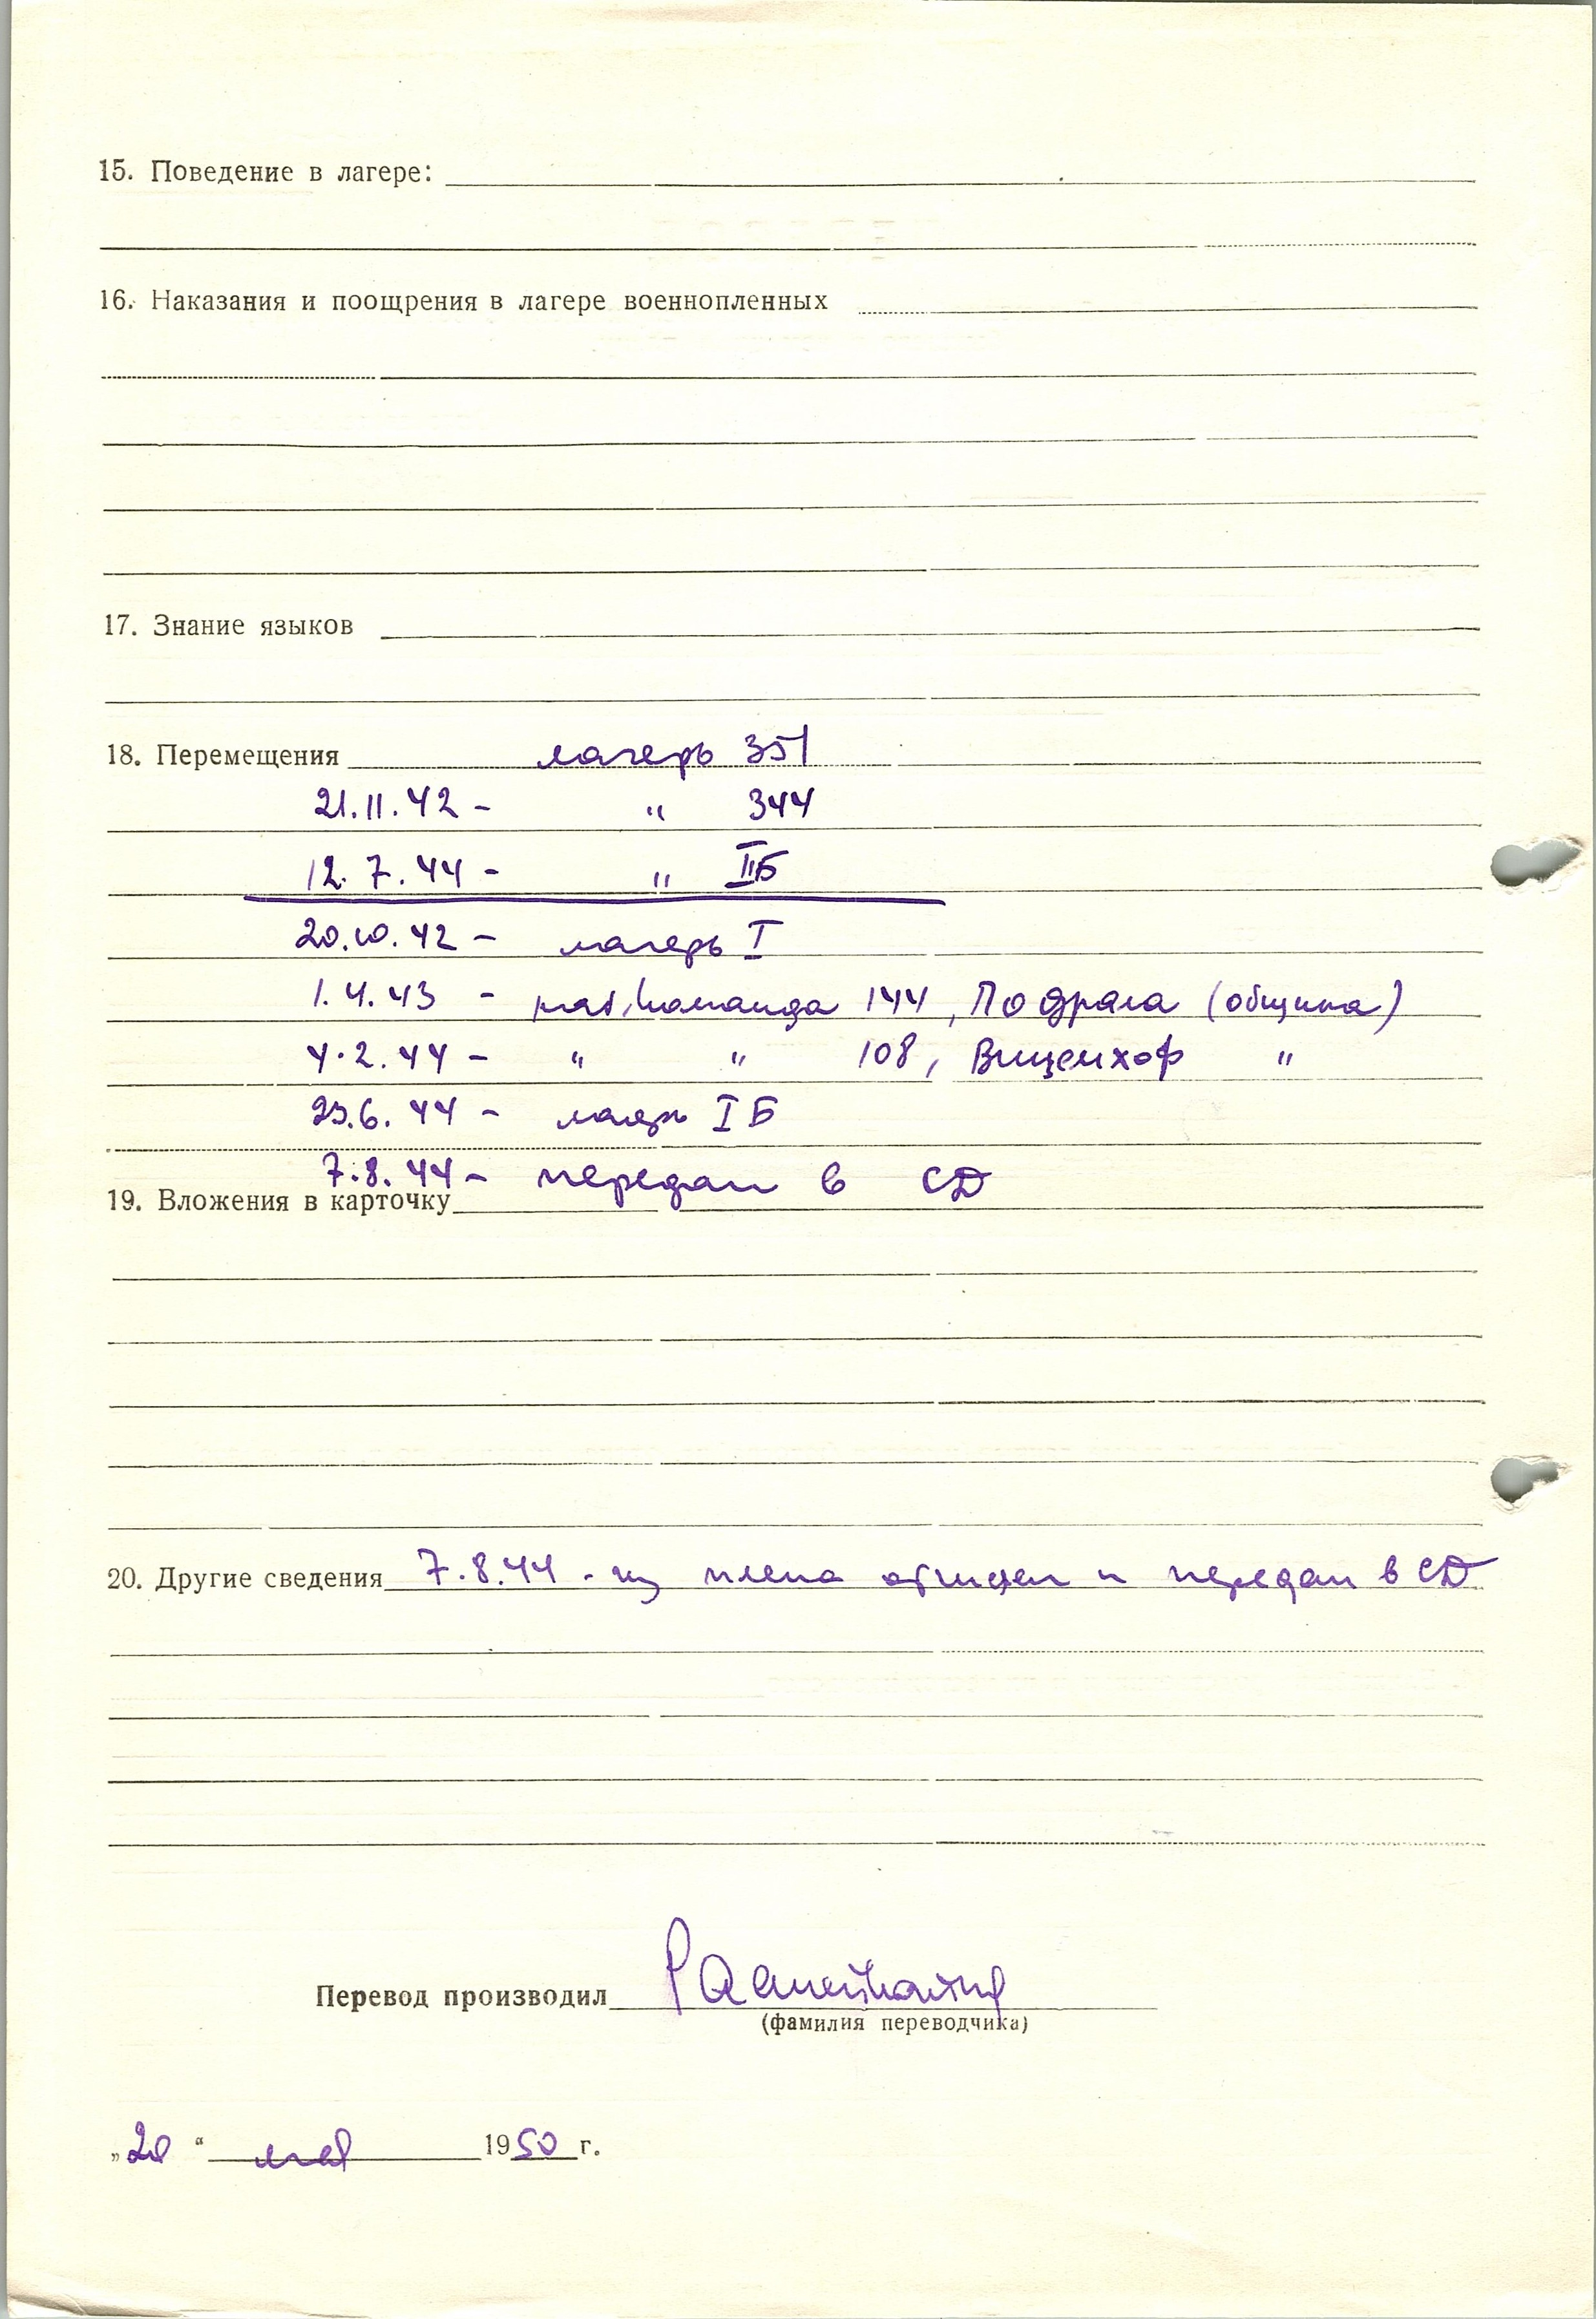 15. Поведение в лагере:
16. Наказания и поощрения в лагере военнопленных
17. Знание языков
18. Перемещения лагерь 351
21.11.42 - " 344
12.7.44 - " IIБ
20.10.42 - лагерь I
1.4.43 - раб. команда 144, Подрага (община)
4.2.44 - " " 108, Виценхоф "
23.6.44 - лагерь I Б
7.8.44 - передан в СД
19. Вложения в карточку
20. Другие сведения 7.8.44 - из плена отпущен и передан в СД
Перевод производил
(фамилия переводчика)
„20“ мая 1950 г.